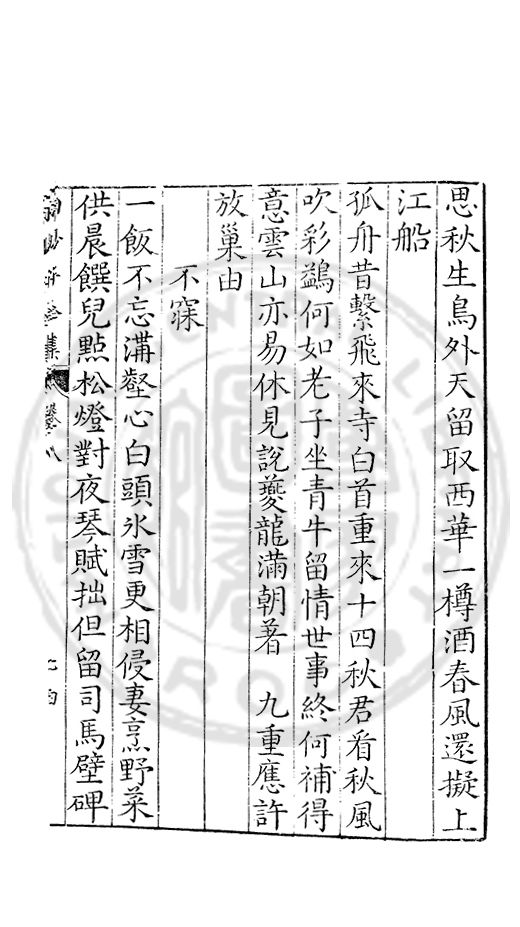 思秋生鳥外天留取西華一樽酒春風還擬上
江船
孤舟昔繫飛來寺白首重來十四秋君看秋風
吹彩鷁何如老子坐青牛留情世事終何補得
意雲山亦易休見說夔龍滿朝著　九重應許
放巢由
不寐
一飯不忘溝壑心白頭氷雪更相侵妻烹野菜
供晨饌兒點松燈對夜琴賦拙但留司馬壁碑